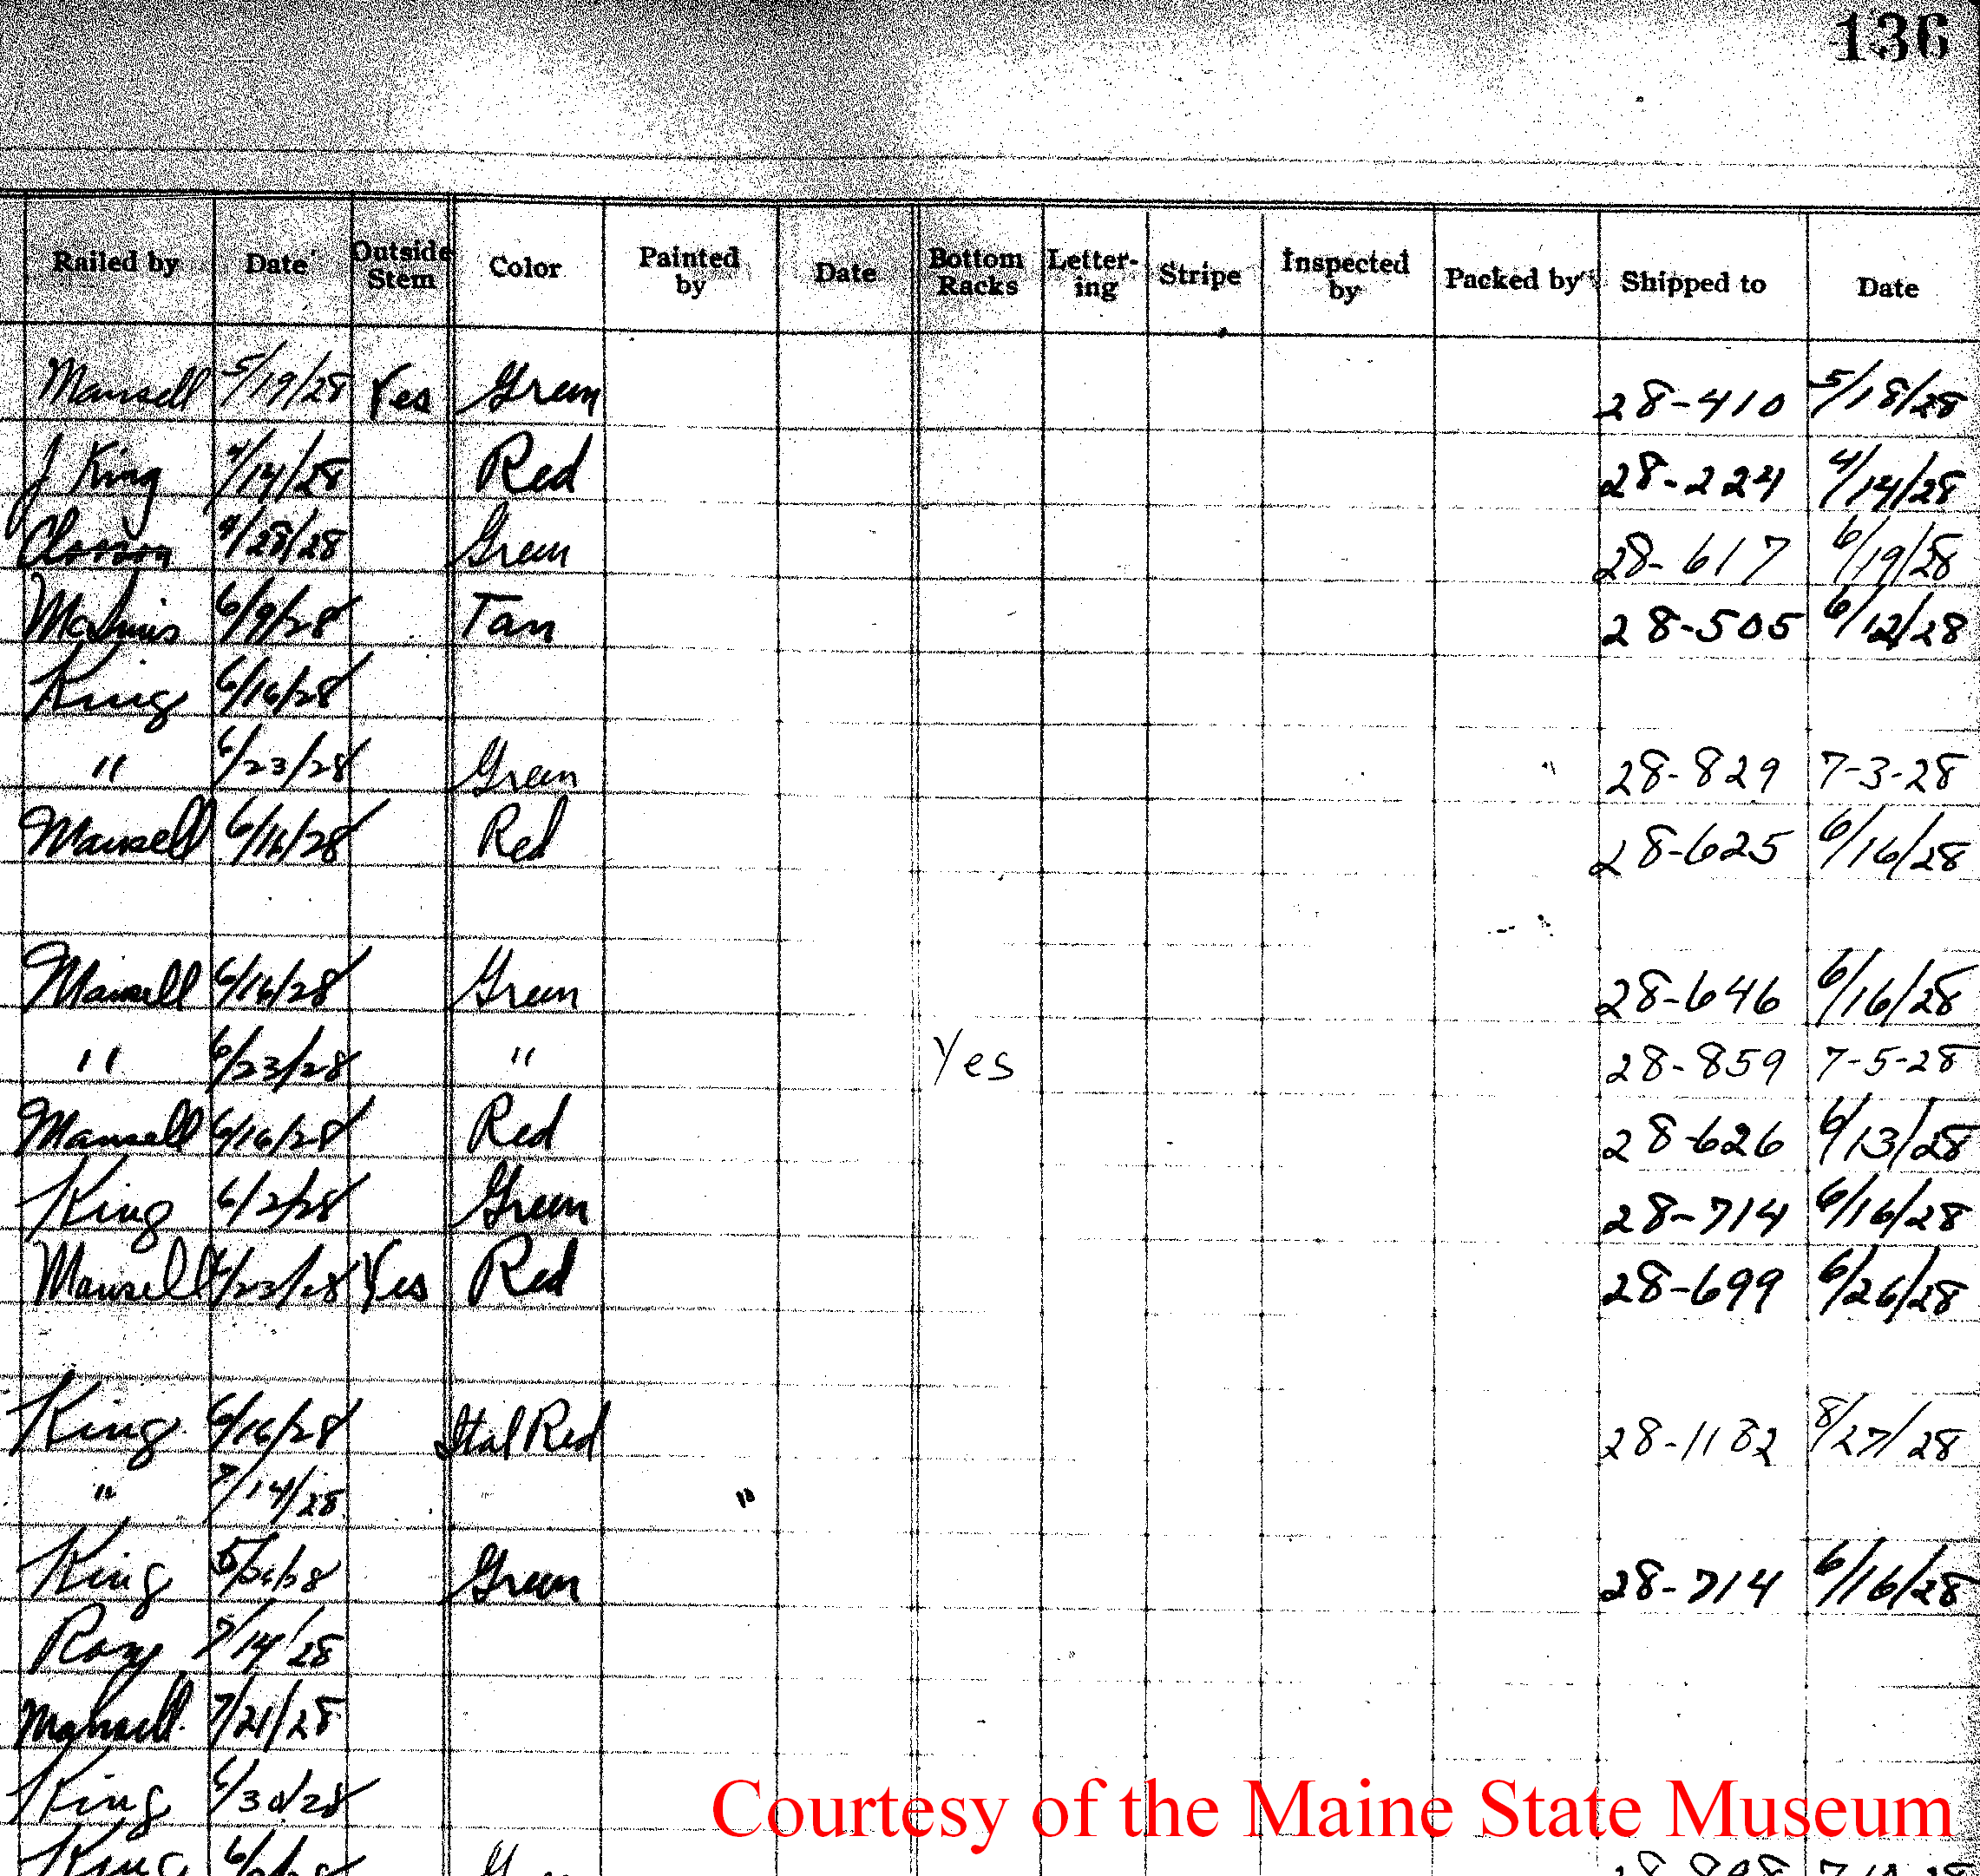 136
Railed by Date Outside Stem Color Painted by Date Bottom Racks Letter-ing Stripe Inspected by Packed by Shipped to Date
Mansell 5/19/28 Yes Green 28-410 5/18/28
J King 4/14/28 Red 28-224 4/14/28
4/28/28 Green 28-617 6/19/28
6/9/28 Tan 28-505 6/12/28
King 6/16/28
" 6/23/28 Green 28-829 7-3-28
Mansell 6/16/28 Red 28-625 6/16/28
Mansell 6/16/28 Green 28-646 6/16/28
" 6/23/28 " Yes 28-859 7-5-28
Mansell 6/16/28 Red 28-626 6/13/28
King 6/2/28 Green 28-714 6/16/28
Mansell 6/23/28 Yes Red 28-699 6/26/28
King 6/16/28 Ital Red 28-1182 8/27/28
" 7/14/28 "
King Green 28-714 6/16/28
7/14/28
Mansell 7/21/28
King 6/30/28
King
Courtesy of the Maine State Museum